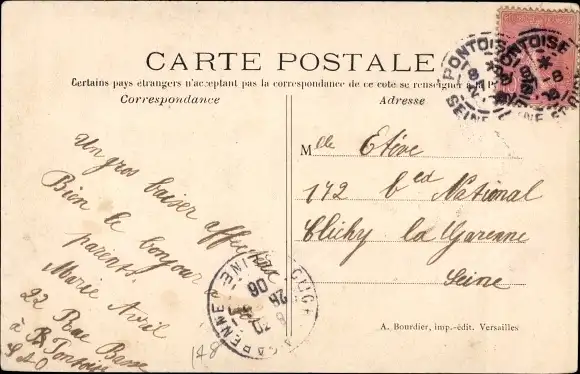 CARTE POSTALE
Certains pays étrangers n'acceptant pas la correspondance de ce coté se renseigner à la P
Correspondance
Adresse
PONTOISE
SEINE ET
Mlle Etève
172 bed National
Clichy la Garenne
Seine
Un gros baiser affectueux
Bien le bonjour à
parents
Marie Avril
22 Rue Basse
à Pontoise
S&O
LA GARENNE
SEINE
26
06
A. Bourdier, imp.-édit. Versailles
148